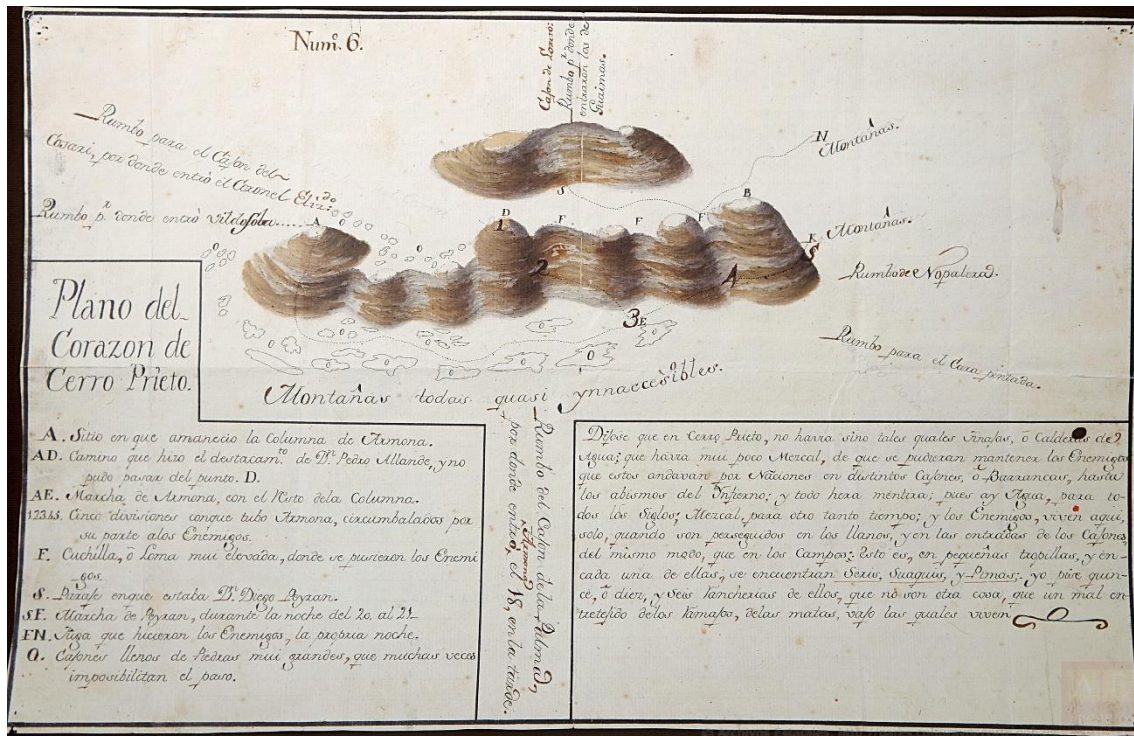 Num.º 6.
Cajon de Lonzo:
Rumbo p.r donde
entraron los de
Guaimas.
Rumbo para el Cajon del
Cosari, por donde entró el Coronel Eliz.do
Rumbo p.r donde entró Vildosola
N
Montañas.
A
D
1
F
F
F
B
S
K
Montañas.
5
2
4
3 E
Rumbo de Nopalera.
Rumbo para el Cara pintada.
Montañas todas quasi ynnaccesibles.
O
O
Plano del
Corazon de
Cerro Prieto.
A. Sitio en que amanecio la Columna de Armona.
AD. Camino que hizo el destacam.to de D.n Pedro Allande, y no
pudo pasar del punto. D.
AE. Marcha de Armona, con el Resto dela Columna.
12345. Cinco divisiones conque tubo Armona, circumbalados por
su parte alos Enemigos.
F. Cuchilla, ò Loma mui elevada, donde se pusieron los Enemi
gos.
S. Paraje enque estaba D.n Diego Peyran.
SF. Marcha de Peyran, durante la noche del 20. al 21.
FN. Fuga que hicieron los Enemigos, la propria noche.
O. Cajones llenos de Piedras mui grandes, que muchas veces
imposibilitan el paso.
Rumbo del Cajon de la Palma,
por donde entró, Armona el 18, en la tarde.
Dijose que en Cerro Prieto, no havia sino tales quales Tinajas, ò Calderas de
Agua; que havia mui poco Mezcal, de que se pudieran mantener los Enemigos
que estos andavan por Naciones en distintos Cajones, ò Barrancas, hasta
los abismos del Infierno; y todo hera mentira; pues ay Agua, para to-
dos lòs Siglos; Mezcal, para otro tanto tiempo; y los Enemigos, viven aqui,
solo, quando son perseguidos en los llanos, y en las entradas de los Cajones
del mismo modo, que en los Campos; Esto es, en pequeñas tropillas, y en
cada una de ellas, se encuentran Seris, Suaquis, y Pimas; yo pise quin-
ce, ò diez, y Seis Rancherias de ellos, que nó son otra cosa, que un mal en
tretejido delos Ramajos, delas matas, vajo las quales viven